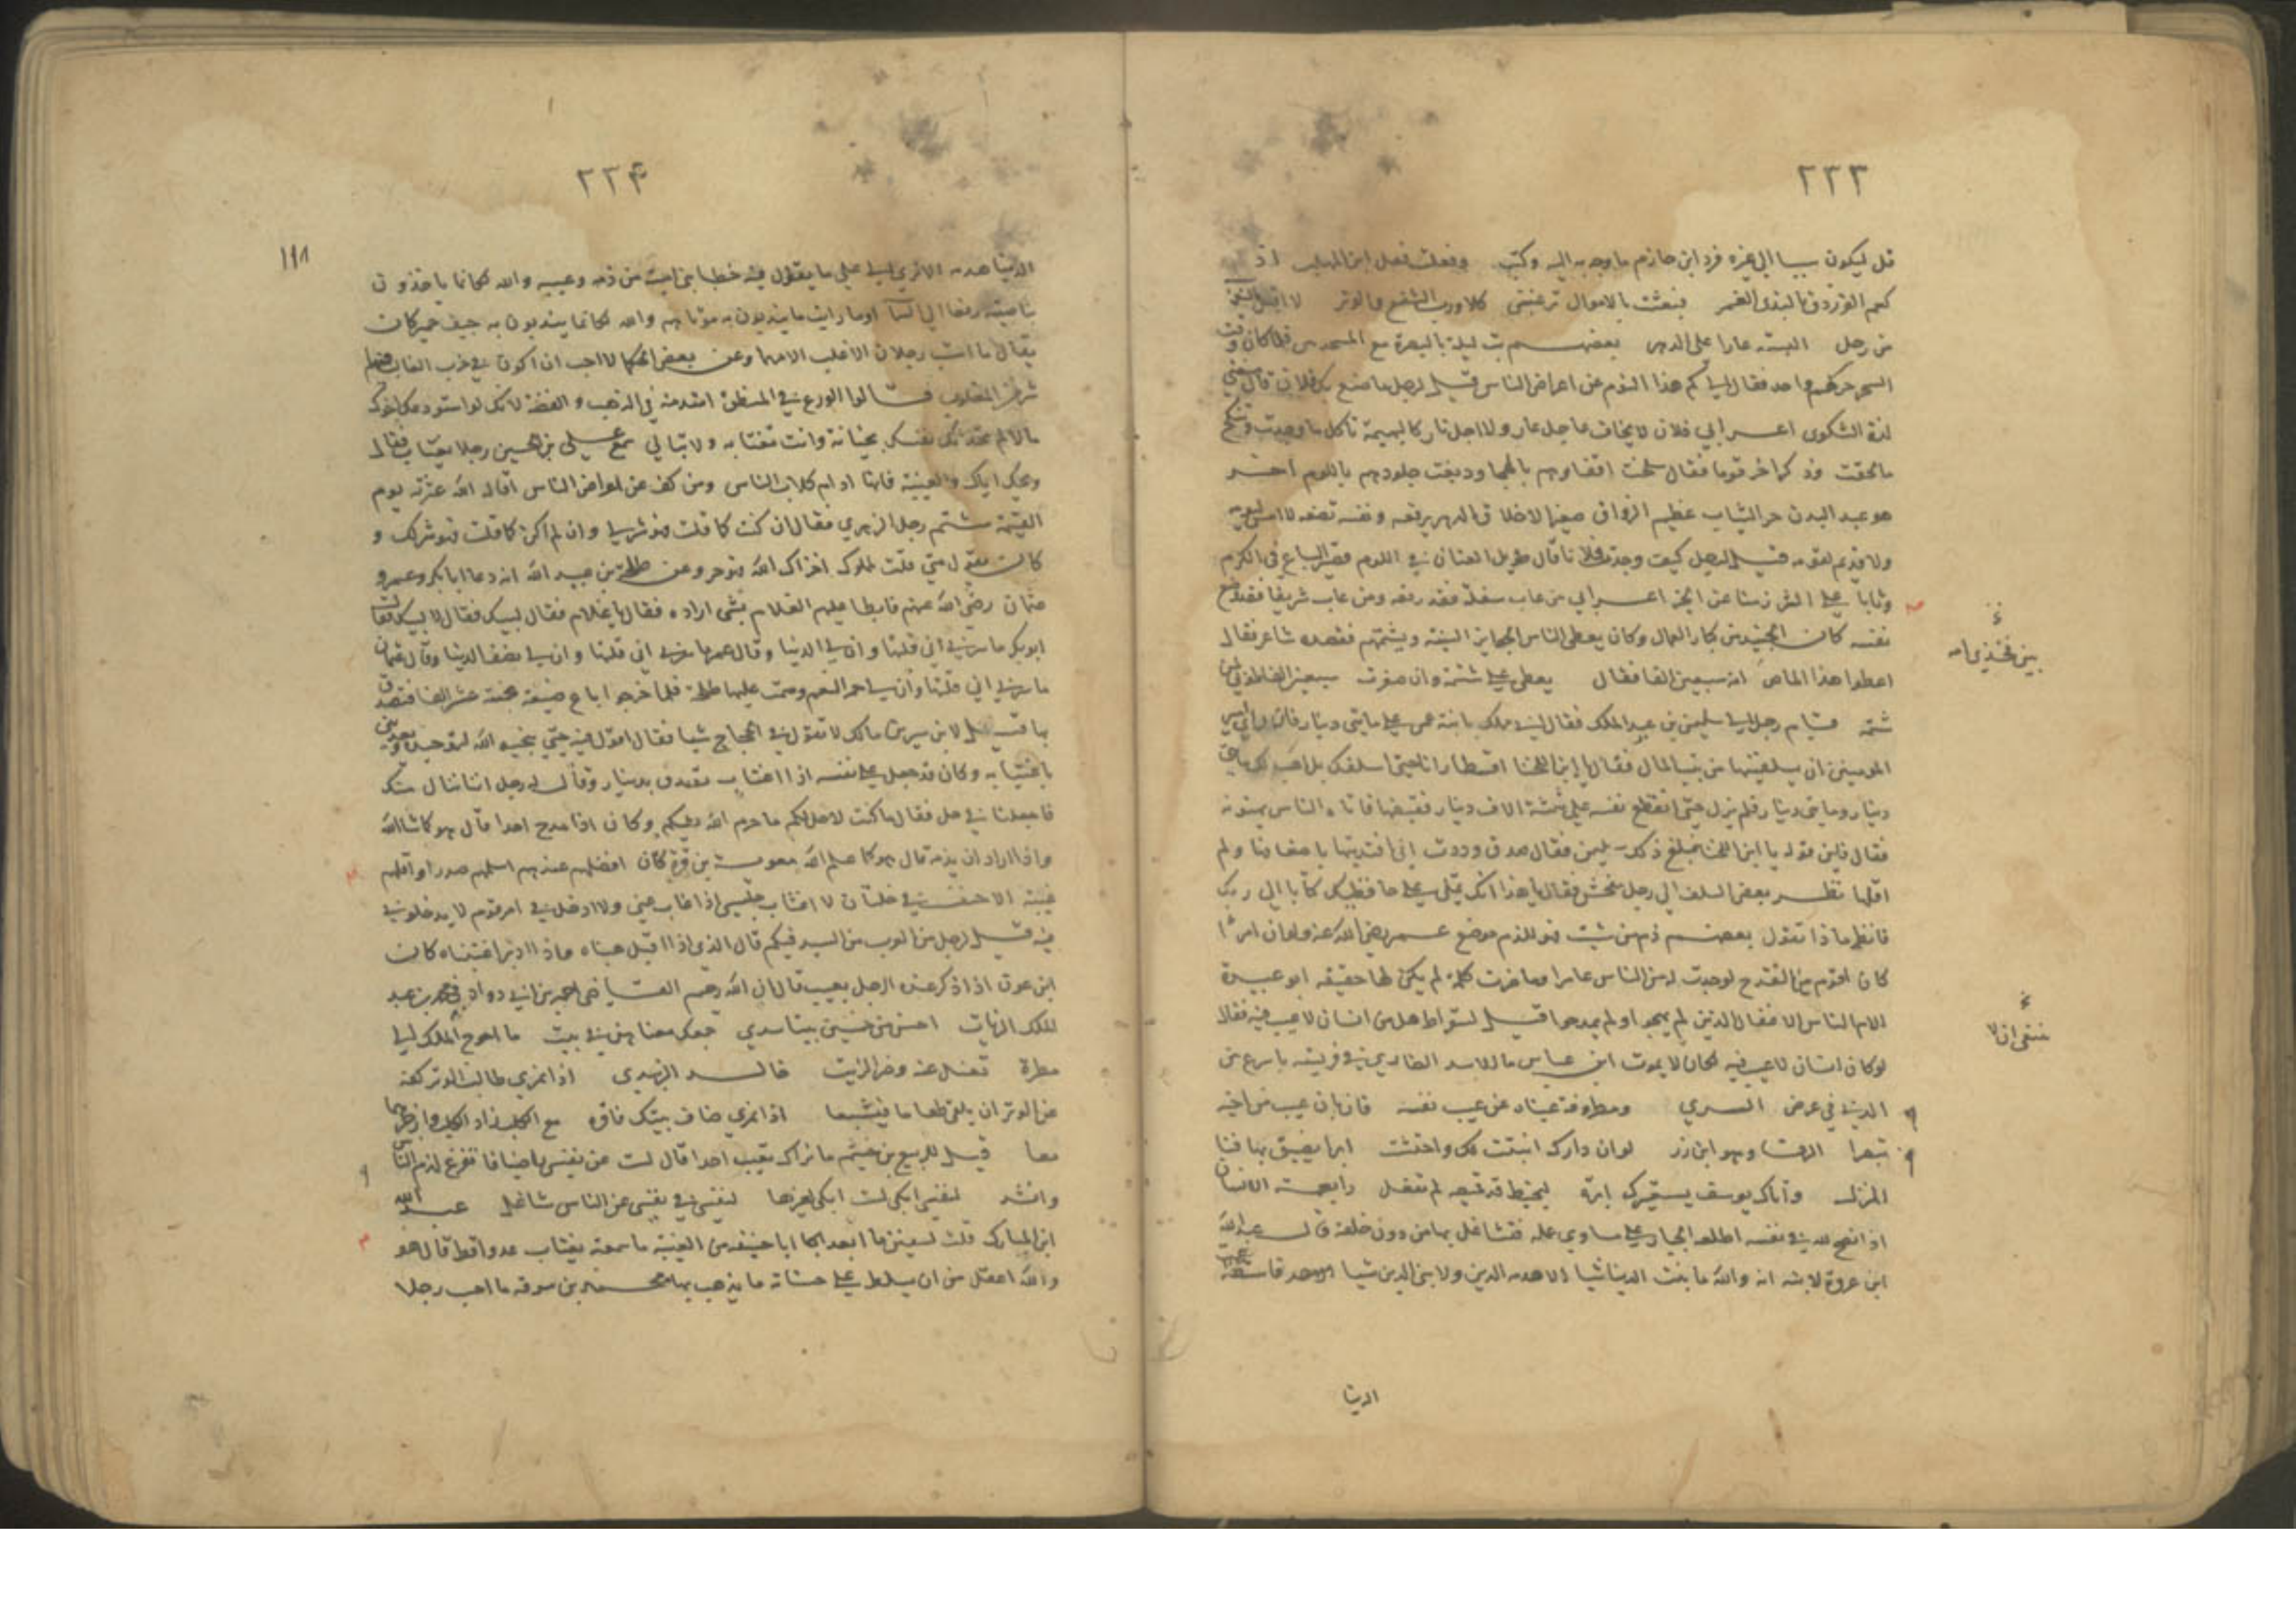 ٢٢٣
كعم الفرزدق بالندى الغمر فبعثت بالاموال ترغبني كلا ورب الشفع والوتر لا
من رجل البسته عارا على الدهر بعضهم بت ليلة بالبصرة مع المسجديين فلما كان وقت
السحر حركهم واحد فقال الى كم هذا النوم عن اعراض الناس قيل لرجل ما صنع بك فلان قال
لذة الشكوى اعرابي فلان لا يخاف عاجل عار ولا اجل نار كالبهيمة تاكل ما وجدت وتنكح
ما لحقت وذكر اخر قوما فقال سلخت اقفاوهم بالهجا ودبغت جلودهم باللوم اخر
هو عبد البدن حر الثياب عظيم الرواق صغير الاخلاق الدهر يرفعه ونفسه تضعه لا امس ليومه
ولا قديم لقومه قيل لرجل كيف وجدت فلانا قال طويل العنان في اللوم قصير الباع في الكرم
وثابا على الشر زمنا عن الخير اعرابي من عاب سفلة فقد رفعه ومن عاب شريفا فقد وضع
نفسه كان الجنيد من كبار العمال وكان يعطي الناس الجوايز السنية ويشتمهم فقصده شاعر فقال
اعطوا هذا الماص امه سبعين الفا فقال يعطي على شتمه وان صغرت سبعين الفا
شتمه قام رجل الى سليمن بن عبد الملك فقال اني مملك بابنة عمي على مايتي دينار فان راى امير
المومنين ان يسلفنيها من بيت المال فقال يا ابن اللخنا اقسطار انا حتى اسلفك بل اهب لك مايتي
دينار ومايتي دينار فلم يزل حتى انقطع نفسه على ثلثة الاف دينار فقبضها فاتاه الناس يهنونه
فقال فاين قوله يا ابن اللخنا فبلغ ذلك سليمن فقال صدق وددت اني افتديتها باضعافها ولم
اقلها نظر بعض السلف الى رجل يفحش فقال يا هذا انك تملي على حافظيك كتابا الى ربك
فانظر ماذا تقول بعضهم ذم من شيت فهو للذم موضع عمر رضي الله عنه لو ان امرءا
كان اقوم من القدح لوجدت له من الناس عامرا وما ضرت كلمة لم يكن لها حقيقه ابو عبيدة
الام الناس الاغفال الذين لم يهجوا ولم يمدحوا قيل لسقراط هل من انسان لا عيب فيه فقال
لو كان انسان لا عيب فيه لكان لا يموت ابن عباس ما الاسد الضاري في فريسته باسرع من
الدني في عرض السري ومطروفة عيناه عن عيب نفسه فان بان عيب من اخيه
تبصرا لو ان دارك انبتت لك واحتشت ابرا يضيق بها فنا
المنزل واتاك يوسف يستعيرك ابرة ليخيط قد قميصه لم تفعل رابعة الانسان
اذا نصح لله في نفسه اطلعه الجبار على مساوي عمله فتشاغل بها من دون خلقه قال عبد الله
ابن عروة لابنه انه والله ما بنت الدنيا شيا الا هدمه الدين ولا بنى الدين شيا
بين فخذي امه
الدنيا
٢٢٤
١١١
الدنيا هدمه الا ترى الى علي ما يقول فيه خطبا بني امية من ذمه وعيبه والله لكانما ياخذون
بناصيته رفعا الى السما اوما رايت ما يندبون به موتاهم والله لكانما يندبون به جيف حمير كان
يقال ما استب رجلان الا غلب الامهما وعن بعض الحكما لا احب ان اكون في حرب الغالب فيها
شر من المغلوب قالوا الورع في المنطق اشد منه في الذهب والفضة لانك لو استودعك اخوك
مالا لم تحدثك نفسك بخيانة وانت تغتابه ولا تبالي سمع علي بن الحسين رجلا يغتاب فقال
ويحك اياك والغيبة فانها ادام كلاب الناس ومن كف عن اعراض الناس اقاله الله عثرته يوم
القيمة شتم رجل الزهري فقال ان كنت كما قلت فهو شر لي وان لم اكن كما قلت فهو شر لك و
كان يقول متى قلت لمملوك اخزاك الله فهو حر وعن طلحة بن عبيد الله انه دعا ابا بكر وعمر و
عثمان رضي الله عنهم فابطا عليهم الغلام بشى اراده فقال يا غلام فقال لبيك فقال لا لبيك فقال
ابو بكر ما يسرني اني قلتها وان لي الدنيا وقال عمر ما يسرني اني قلتها وان لي نصف الدنيا وقال عثمان
ما يسرني اني قلتها وان لي حمر النعم وصمت عليها طلحة فلما خرجوا باع ضيعة بخمسة عشر الفا فتصدق
بها قيل لابن سيرين مالك لا تقول في الحجاج شيا فقال اقول فيه حتى ينجيه الله لتوحيده ويعذبني
باغتيابه وكان قد جعل على نفسه اذا اغتاب تصدق بدينار وقال له رجل انا ننال منك
فاجعلنا في حل فقال ما كنت لاحل لكم ما حرم الله عليكم وكان اذا مدح احدا قال هو كما شا الله
واذا اراد ان يذمه قال هو كما علم الله معوية بن قرة كان افضلهم عندهم اسلمهم صدرا واقلهم
غيبة الاحنف في خلتان لا اغتاب جليسي اذا غاب عني ولا ادخل في امر قوم لا يدخلوني
فيه قيل لرجل من العرب من السيد فيكم قال الذي اذا اقبل هبناه واذا ادبر اغتبناه كان
ابن عون اذا ذكر عنده الرجل بعيب قال ان الله رحيم القاضي احمد بن ابي دواد في محمد بن عبد
الملك الزيات احسن من خمسين بيتا سدى جمعك معناهن في بيت ما احوج الملك الى
مطرة تغسل عنه وضر الزيت
معا قيل للربيع بن خيثم ما نراك تعيب احدا قال لست عن نفسي راضيا فاتفرغ لذم الناس
وانشد لنفسي ابكي لست ابكي لغيرها لنفسي في نفسي عن الناس شاغل عبد الله
ابن المبارك قلت لسفين ما ابعد ابا حنيفه من الغيبة ما سمعته يغتاب عدوا قط قال هو
والله اعقل من ان يسلط على حسناته ما يذهب بها محمد بن سوقه ما احب رجلا